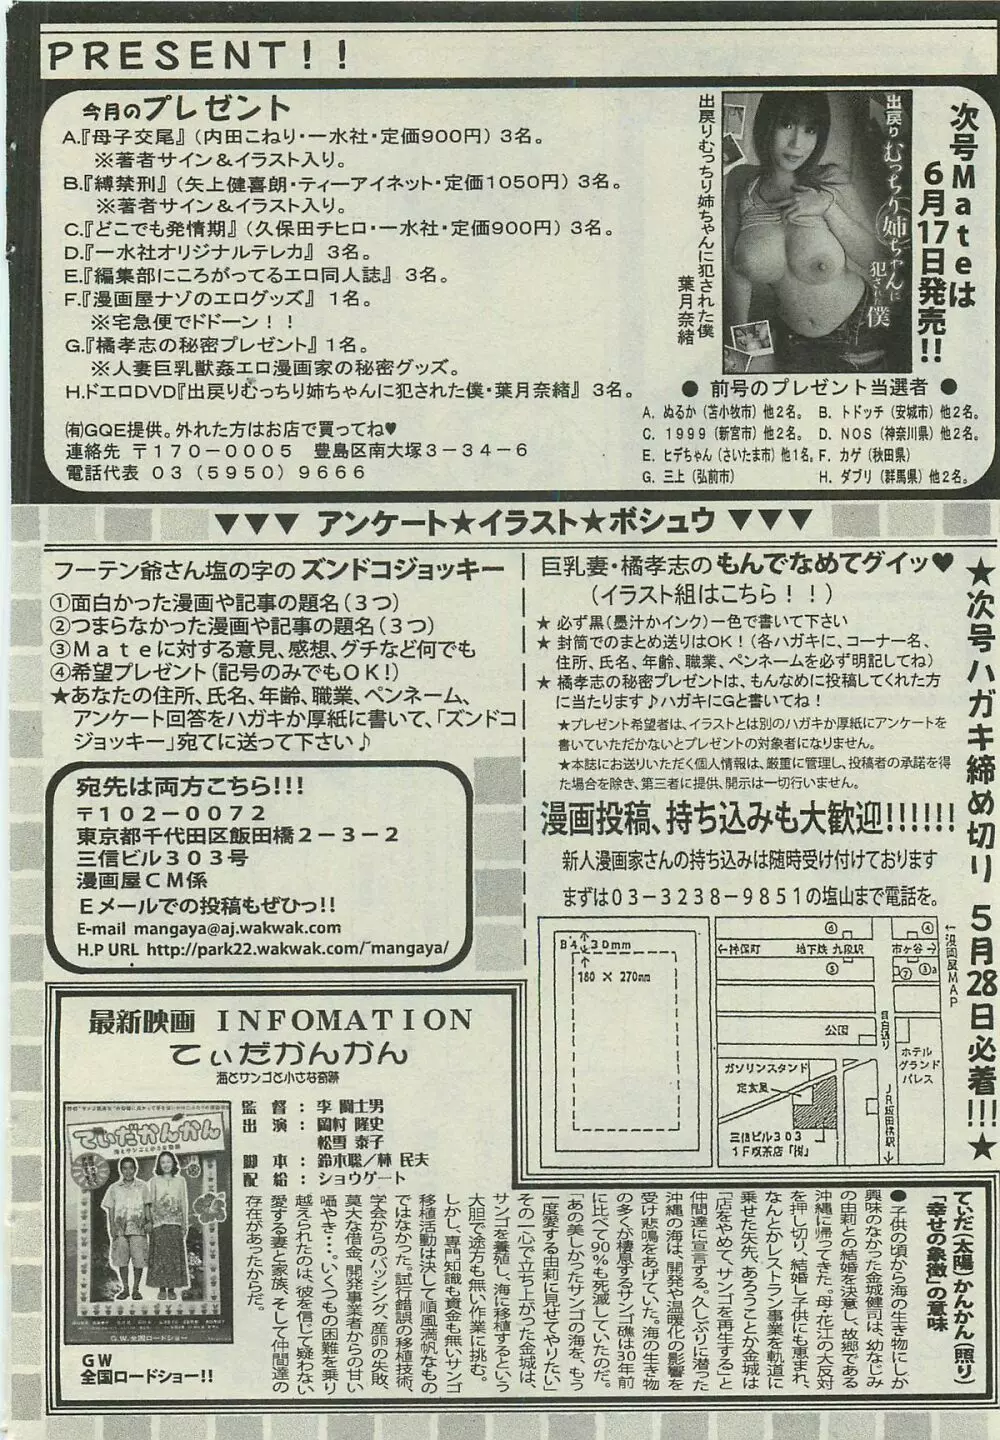 PRESENT!!
今月のプレゼント
A.『母子交尾』(内田こねり・一水社・定価900円)3名。
※著者サイン＆イラスト入り。
B.『縛禁刑』(矢上健喜朗・ティーアイネット・定価1050円)3名。
※著者サイン＆イラスト入り。
C.『どこでも発情期』(久保田チヒロ・一水社・定価900円)3名。
D.『一水社オリジナルテレカ』3名。
E.『編集部にころがってるエロ同人誌』3名。
F.『漫画屋ナゾのエログッズ』1名。
※宅急便でドドーン！！
G.『橘孝志の秘密プレゼント』1名。
※人妻巨乳獣姦エロ漫画家の秘密グッズ。
H.ドエロDVD『出戻りむっちり姉ちゃんに犯された僕・葉月奈緒』3名。
㈲GQE提供。外れた方はお店で買ってね♥
連絡先 〒170-0005 豊島区南大塚3-34-6
電話代表 03(5950)9666
次号Mateは
6月17日発売!!
出戻りむっちり姉ちゃんに犯された僕
出戻りむっちり姉ちゃんに犯された僕
葉月奈緒
● 前号のプレゼント当選者 ●
A. ぬるか(苫小牧市)他2名。 B. トドッチ(安城市)他2名。
C. 1999(新宮市)他2名。 D. NOS(神奈川県)他2名。
E. ヒデちゃん(さいたま市)他1名。 F. カゲ(秋田県)
G. 三上(弘前市) H. ダブリ(群馬県)他2名。
▼▼▼ アンケート★イラスト★ボシュウ ▼▼▼
フーテン爺さん塩の字の ズンドコジョッキー
①面白かった漫画や記事の題名(3つ)
②つまらなかった漫画や記事の題名(3つ)
③Mateに対する意見、感想、グチなど何でも
④希望プレゼント(記号のみでもOK!)
★あなたの住所、氏名、年齢、職業、ペンネーム、
アンケート回答をハガキか厚紙に書いて、「ズンドコ
ジョッキー」宛てに送って下さい♪
宛先は両方こちら!!!
〒102-0072
東京都千代田区飯田橋2-3-2
三信ビル303号
漫画屋CM係
Eメールでの投稿もぜひっ!!
E-mail mangaya@aj.wakwak.com
H.P URL http://park22.wakwak.com/~mangaya/
巨乳妻・橘孝志の もんでなめてグイッ♥
(イラスト組はこちら！！)
★ 必ず黒(墨汁かインク)一色で書いて下さい
★ 封筒でのまとめ送りはOK！(各ハガキに、コーナー名、
住所、氏名、年齢、職業、ペンネームを必ず明記してね)
★ 橘孝志の秘密プレゼントは、もんなめに投稿してくれた方
に当たります♪ハガキにGと書いてね！
★プレゼント希望者は、イラストとは別のハガキか厚紙にアンケートを
書いていただかないとプレゼントの対象者になりません。
★本誌にお送りいただく個人情報は、厳重に管理し、投稿者の承諾を得
た場合を除き、第三者に提供、開示は一切行いません。
漫画投稿、持ち込みも大歓迎!!!!!!
新人漫画家さんの持ち込みは随時受け付けております
まずは03-3238-9851の塩山まで電話を。
★次号ハガキ締め切り 5月28日必着!!!★
B4 30mm
180 × 270mm
⑥
④
←神保町 地下鉄 九段駅 市ヶ谷→
⑤
⑦
③a
←漫画屋MAP
公園
目白通り
ホテル
グランド
パレス
ガソリンスタンド
定食屋
三信ビル303
1F喫茶店「街」
JR飯田橋駅→
最新映画 INFOMATION
てぃだかんかん
海とサンゴと小さな奇跡
監督：李 闘士男
出演：岡村 隆史
松雪 泰子
脚本：鈴木聡／林 民夫
配給：ショウゲート
てぃだかんかん
海とサンゴと小さな奇跡
G.W.全国ロードショー
GW
全国ロードショー!!
てぃだ(太陽)かんかん(照り)
「幸せの象徴」の意味
●子供の頃から海の生き物にしか
興味のなかった金城健司は、幼なじみ
の由莉との結婚を決意し、故郷である
沖縄に帰ってきた。母・花江の大反対
を押し切り、結婚し子供にも恵まれ、
なんとかレストラン事業を軌道に
乗せた矢先、あろうことか金城は
「店をやめて、サンゴを再生する」と
仲間達に宣言する。久しぶりに潜った
沖縄の海は、開発や温暖化の影響を
受け悲鳴をあげていた。海の生き物
の多くが棲息するサンゴ礁は30年前
に比べて90％も死滅していたのだ。
「あの美しかったサンゴの海を、もう
一度愛する由莉に見せてやりたい」
その一心で立ち上がった金城は、
サンゴを養殖し、海に移植するという
大胆で途方も無い作業に挑む。
しかし、専門知識も資金も無いサンゴ
移植活動は決して順風満帆なもの
ではなかった。試行錯誤の移植技術、
学会からのバッシング、産卵の失敗、
莫大な借金、開発事業者からの甘い
囁やき・・・。いくつもの困難を乗り
越えられたのは、彼を信じて疑わない
愛する妻と家族、そして仲間達の
存在があったからだ。